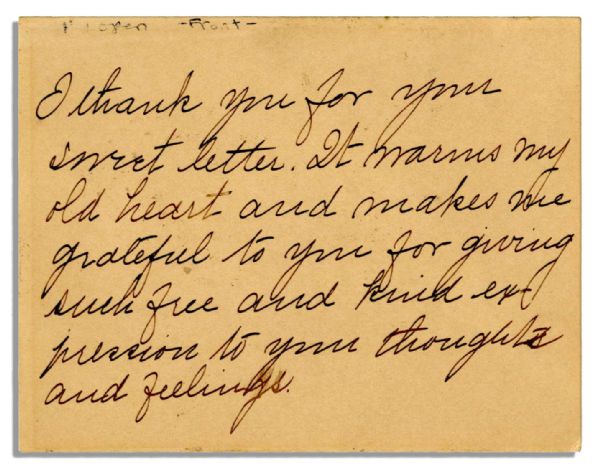 -Front-
I thank you for your
sweet letter. It warms my
old heart and makes me
grateful to you for giving
such free and kind ex-
pression to your thoughts
and feelings.